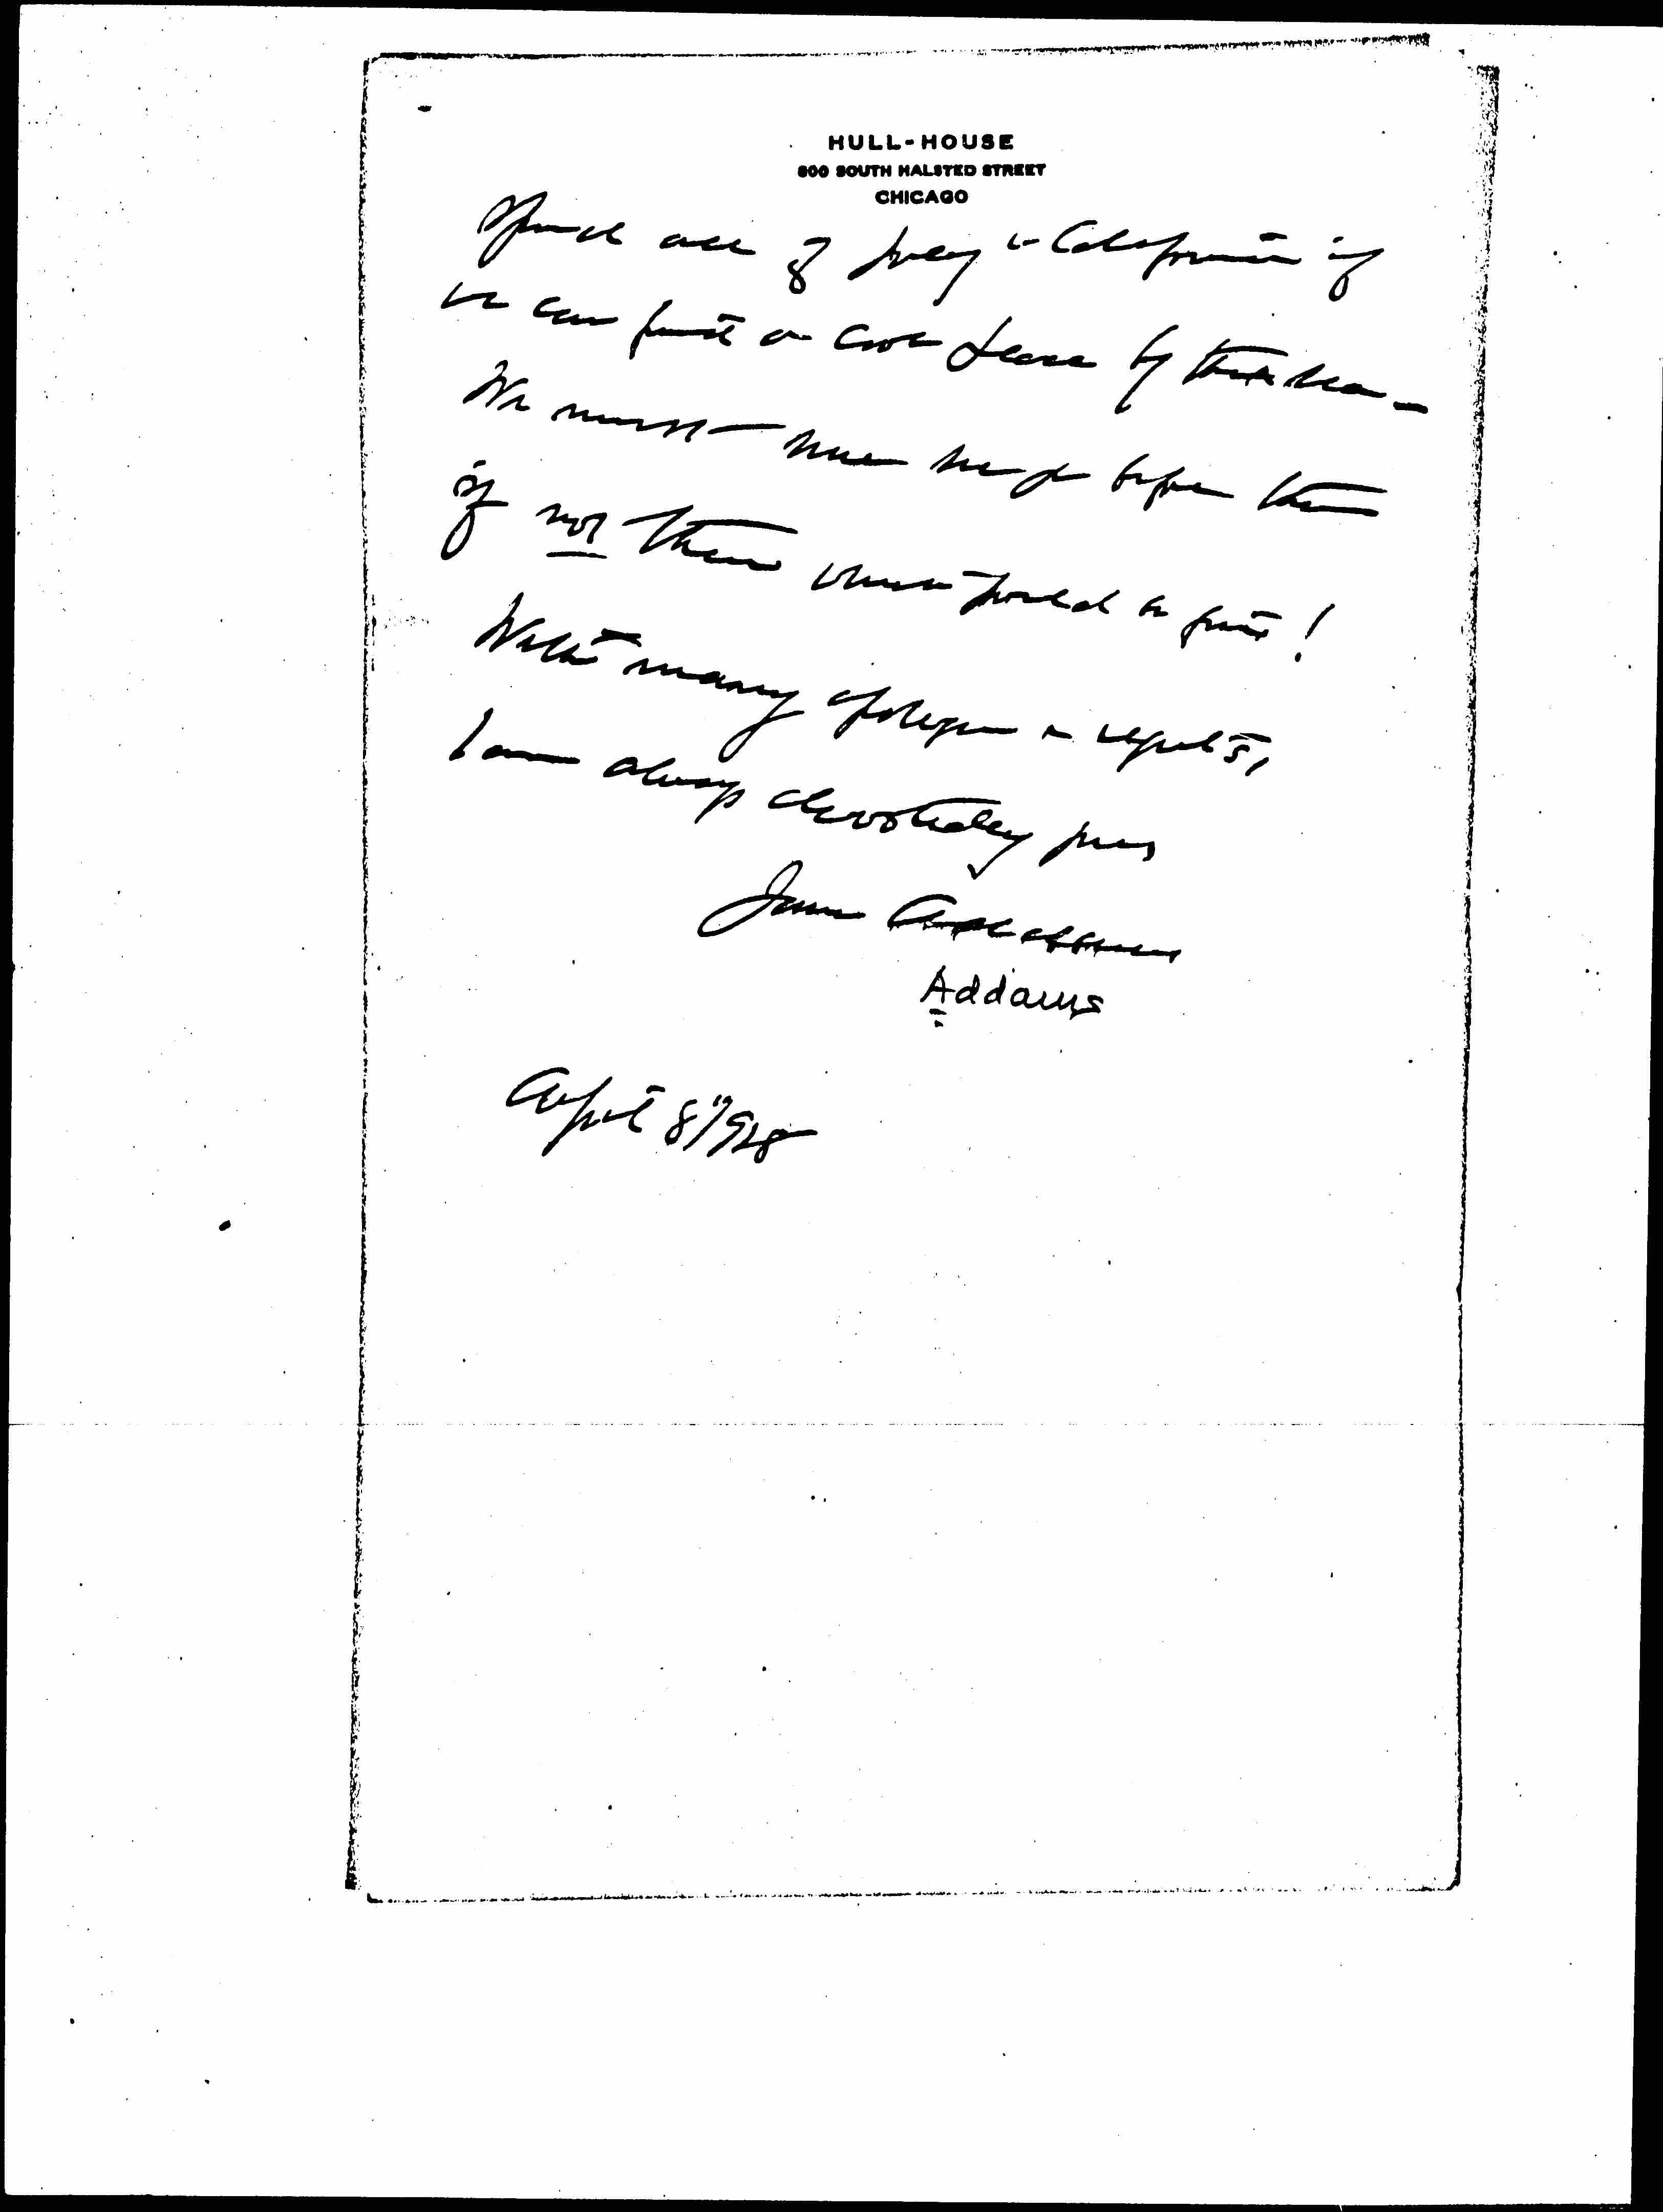 HULL-HOUSE
800 SOUTH HALSTED STREET
CHICAGO
Spend all of July in California if
we can find a cool place by the sea -
We must have met before then
if not then where would we find!
With many apologies & regrets,
I am always devotedly yours
Jane Addams
Addams
April 8" 1928